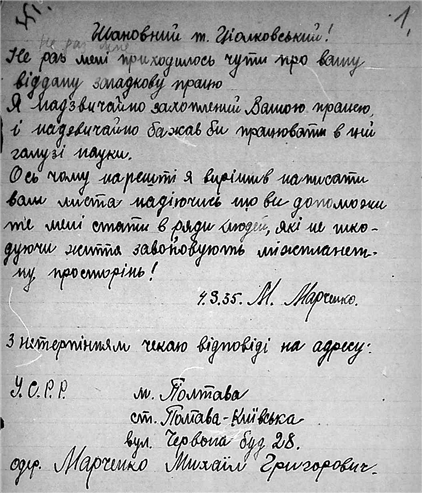 1.
Шановний т. Ціолковський!
Не раз мені приходилось чути про вашу
віддану загадкову працю
Я надзвичайно захоплений Вашою працею,
і надзвичайно бажав би працювати в цій
галузі науки.
Ось чому нарешті я вирішив написати
вам листа надіючись що ви допоможе
те мені стати в ряди людей, які не шко-
дуючи життя завойовують міжпланет-
ну просторінь!
4.3.35. М. Марченко.
З нетерпінням чекаю відповіді на адресу:
У.С.Р.Р. м. Полтава
ст. Полтава-Київська
вул. Червона буд 28.
одер. Марченко Михаїл Григорович.